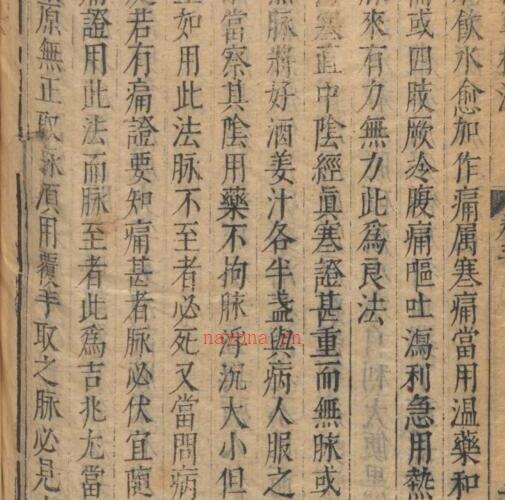 飲水愈加作痛属寒痛當用温藥和
或四肢厥冷腹痛嘔吐瀉利急用熱
脉來有力無力此為良法
寒直中陰經眞寒證甚重而無脉或
無脉將好酒姜汁各半盞與病人服之
當察其陰用藥不拘脉浮沉大小但
至如用此法脉不至者必死又當問病
若有痛證要知痛甚者脉必伏宜随
痛證用此法而脉至者此為吉兆尤當
原無正取脉須用覆手取之脉必見
nayona.cn